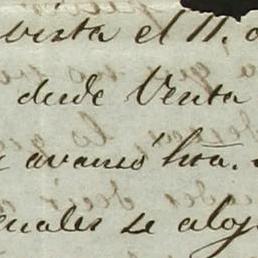 vista el 11.
desde Venta
avansó hta.
cuales se aloj